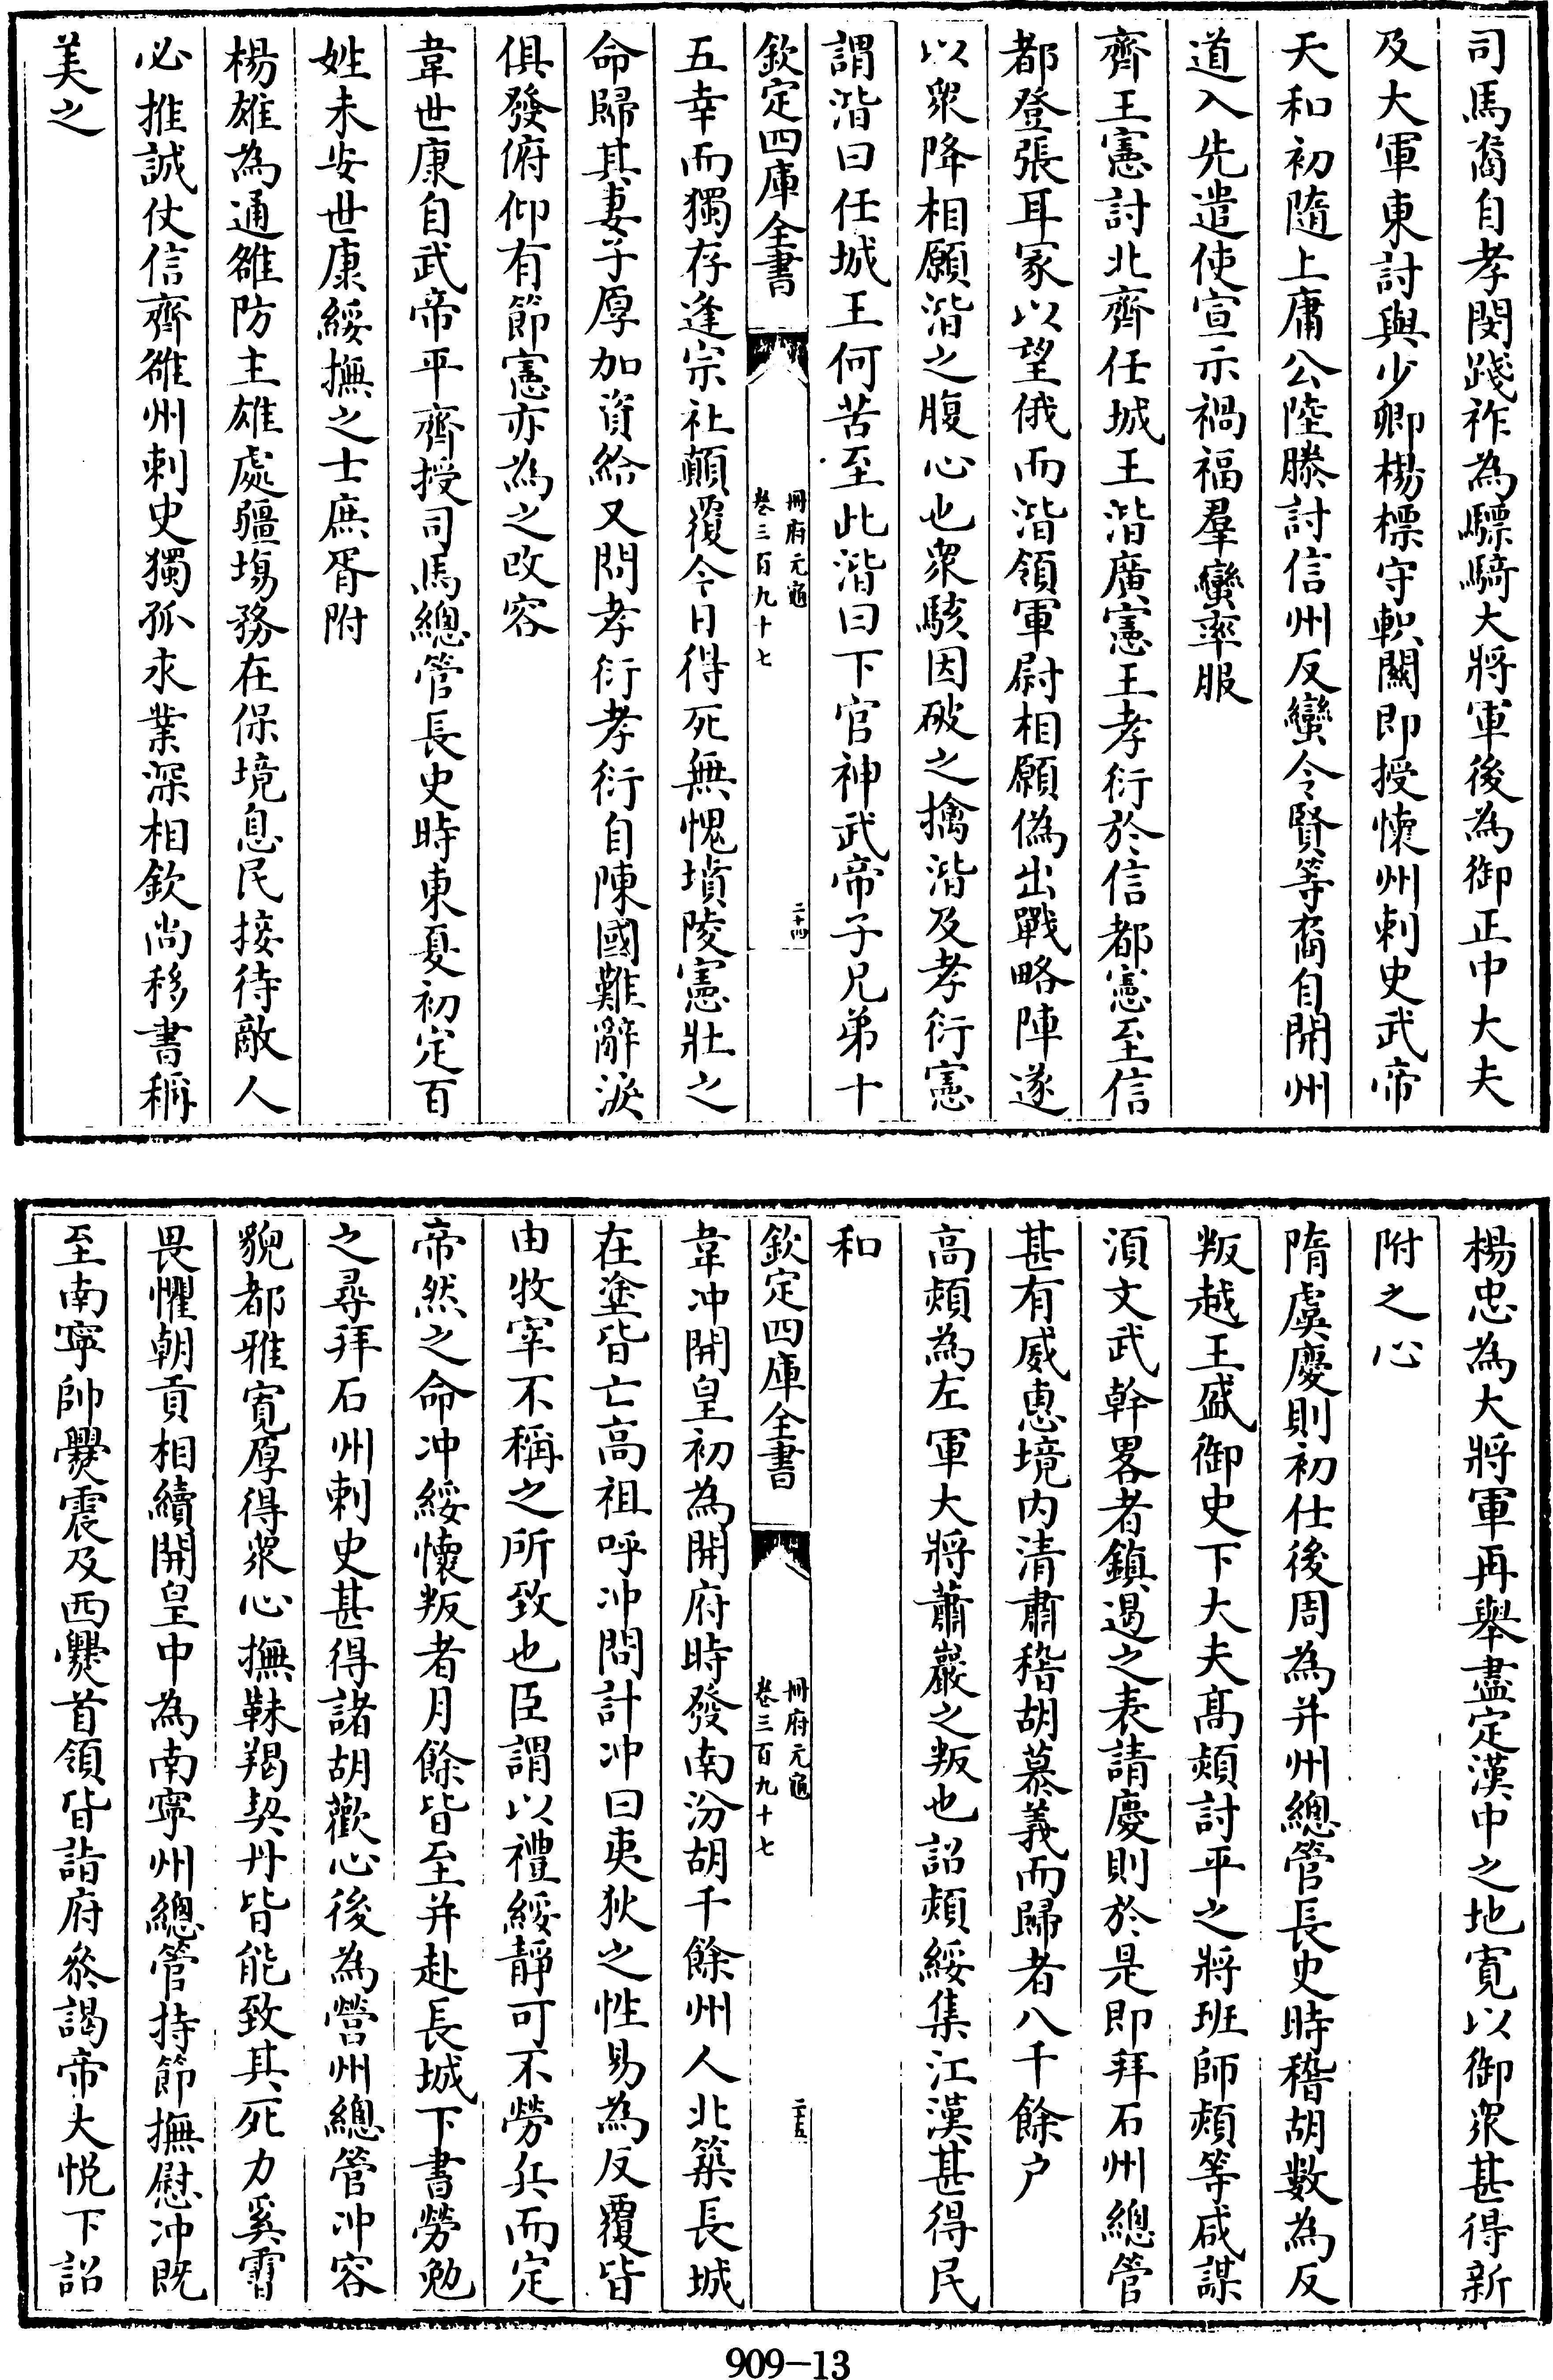 司馬裔自孝閔踐祚為驃騎大將軍後為御正中大夫
及大軍東討與少卿楊檦守軹關即授懷州刺史武帝
天和初隨上庸公陸滕討信州反蠻令賢等裔自開州
道入先遣使宣示禍福羣蠻率服
齊王憲討北齊任城王湝廣憲王孝衍於信都憲至信
都登張耳冢以望俄而湝領軍尉相願偽出戰略陣遂
以衆降相願湝之腹心也衆駭因破之擒湝及孝衍憲
謂湝曰任城王何苦至此湝曰下官神武帝子兄弟十
欽定四庫全書
冊府元龜
卷三百九十七
二十四
五幸而獨存逢宗社顛覆今日得死無愧墳陵憲壯之
命歸其妻子厚加資給又問孝衍孝衍自陳國難辭淚
俱發俯仰有節憲亦為之改容
韋世康自武帝平齊授司馬總管長史時東夏初定百
姓未安世康綏撫之士庶胥附
楊雄為通雒防主雄處疆埸務在保境息民接待敵人
必推誠仗信齊雒州刺史獨孤永業深相欽尚移書稱
美之
楊忠為大將軍再舉盡定漢中之地寛以御衆甚得新
附之心
隋虞慶則初仕後周為并州總管長史時稽胡數為反
叛越王盛御史下大夫高熲討平之將班師熲等咸謀
湏文武幹畧者鎮遏之表請慶則於是即拜石州總管
甚有威恵境内清肅稽胡慕義而歸者八千餘户
高熲為左軍大將蕭巖之叛也詔熲綏集江漢甚得民
和
欽定四庫全書
冊府元龜
卷三百九十七
二十五
韋沖開皇初為開府時發南汾胡千餘州人北築長城
在塗皆亡高祖呼沖問計沖曰夷狄之性易為反覆皆
由牧宰不稱之所致也臣謂以禮綏靜可不勞兵而定
帝然之命沖綏懷叛者月餘皆至并赴長城下書勞勉
之尋拜石州刺史甚得諸胡歡心後為營州總管沖容
貌都雅寛厚得衆心撫靺羯契丹皆能致其死力奚霫
畏懼朝貢相續開皇中為南寧州總管持節撫慰沖既
至南寧帥爨震及西爨首領皆詣府叅謁帝大悅下詔
909-13